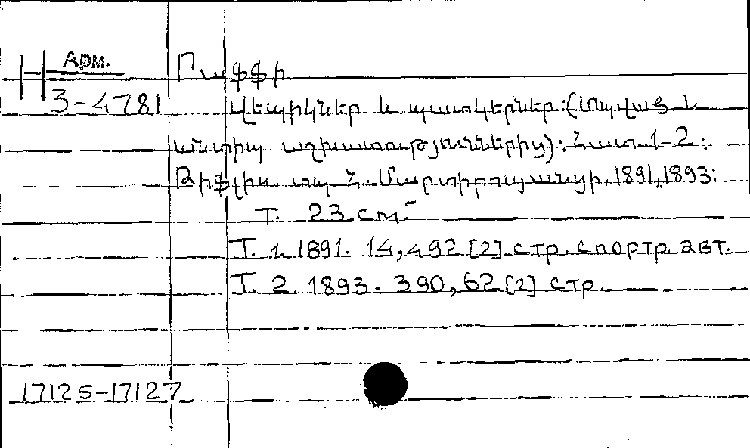 Арм. Րաֆֆի
3-4781
Վեպիկներ և պատկերներ: (Տպված և
անտիպ աշխատություններից): Հատ. 1-2:
Թիֆլիս տպ. Մ. Մարտիրոսյանցի, 1891, 1893:
Т. 23 см.
Т. 1. 1891. 14, 492 [2] стр. с портр. авт.
Т. 2. 1893. 390, 62 [2] стр.
17125-17127